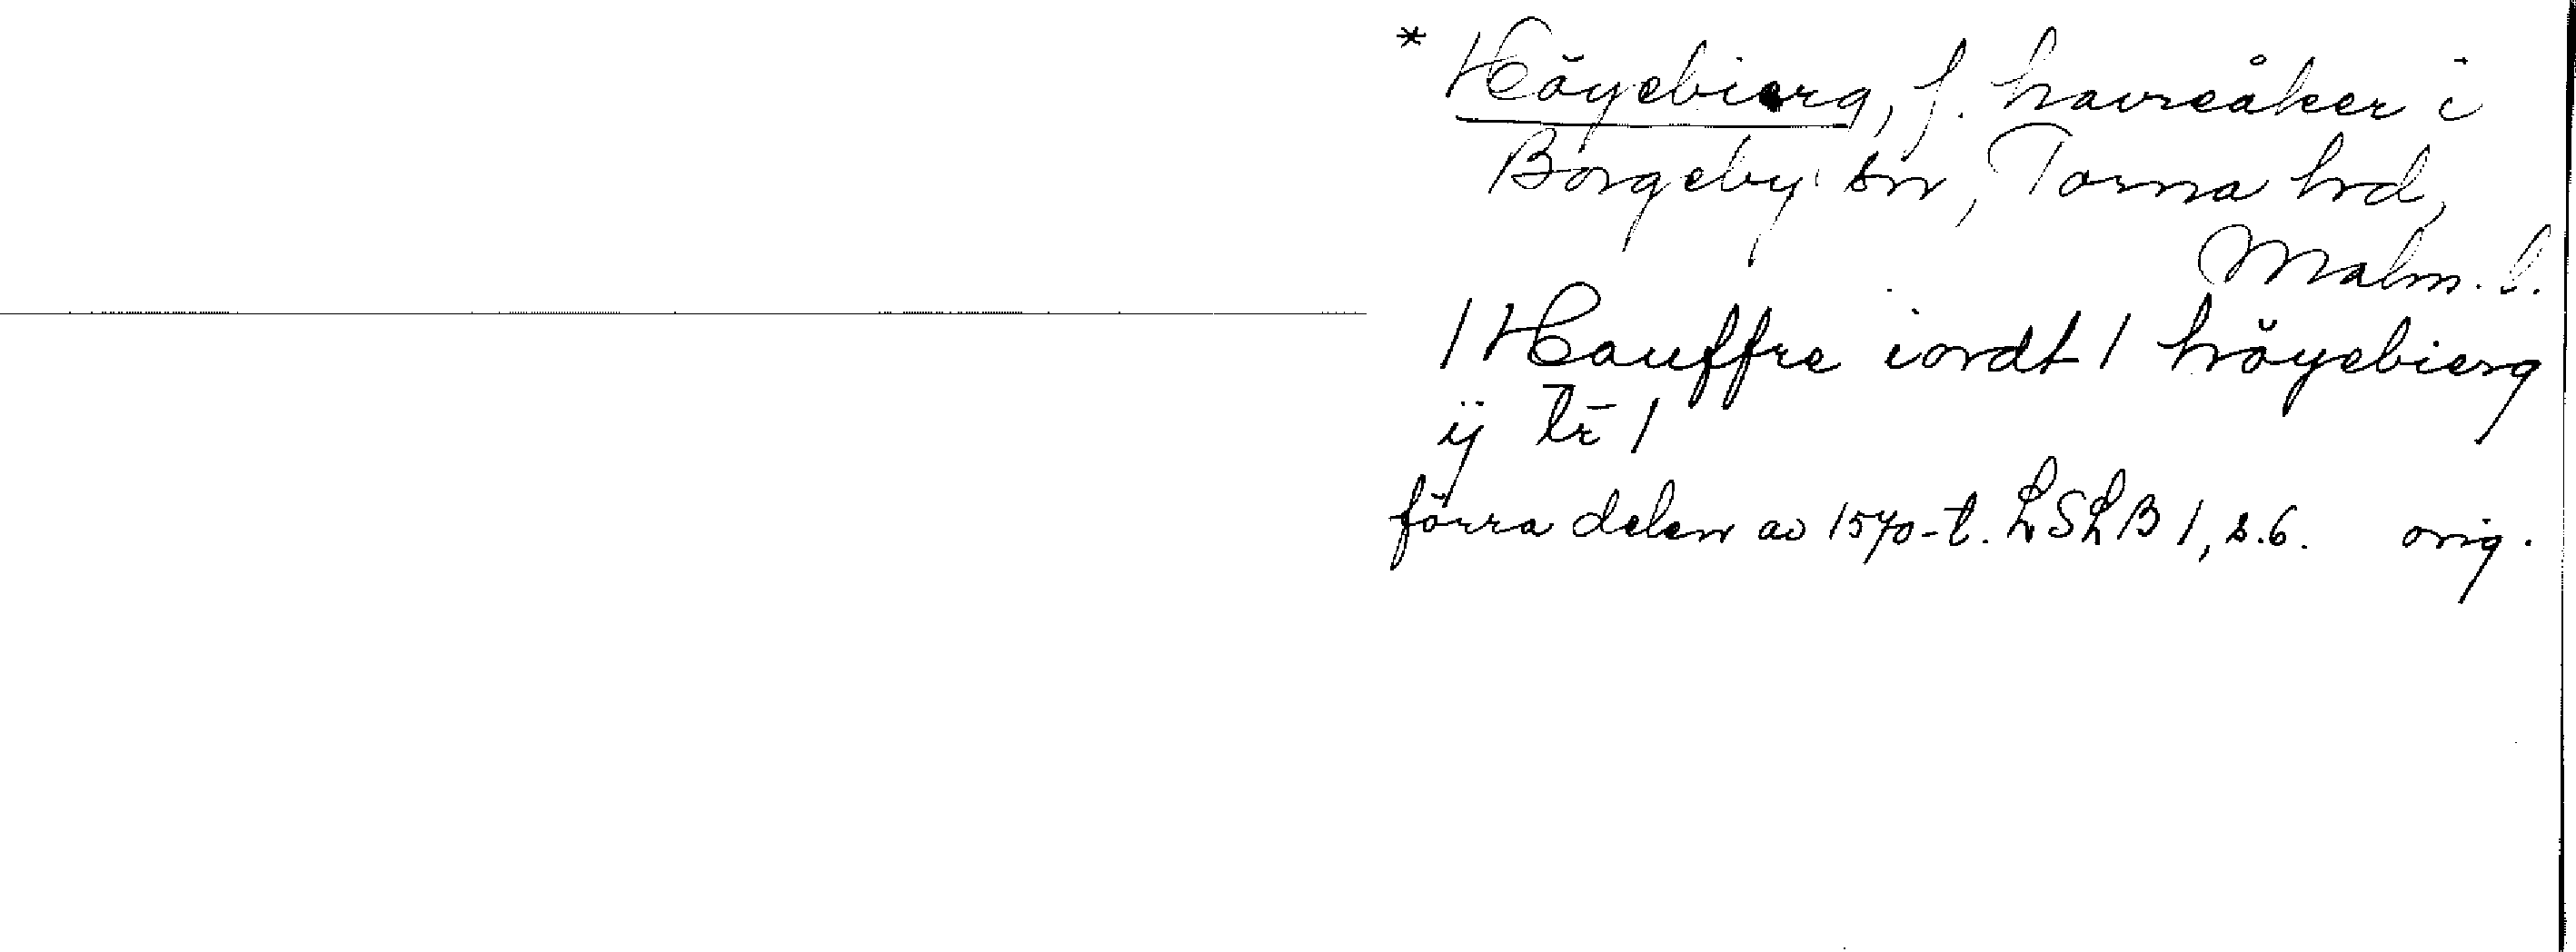 * Höyebierg, f. havreåker i
Borgeby sn, Torna hd,
Malm. l.
/ Hauffre iordt / höyebierg
ij tr̄ /
förra delen av 1570-t. LSLB 1, s.6. orig.